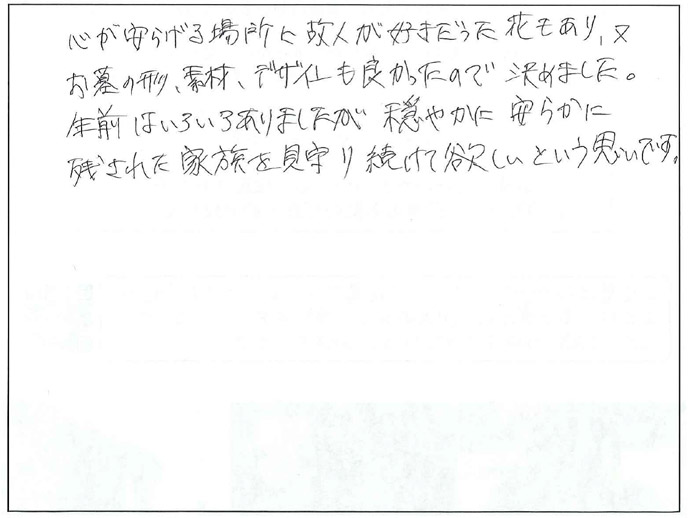 心が安らげる場所に故人が好きだった花もあり、又
お墓の形、素材、デザインも良かったので決めました。
生前はいろいろありましたが穏やかに安らかに
残された家族を見守り続けて欲しいという思いです。